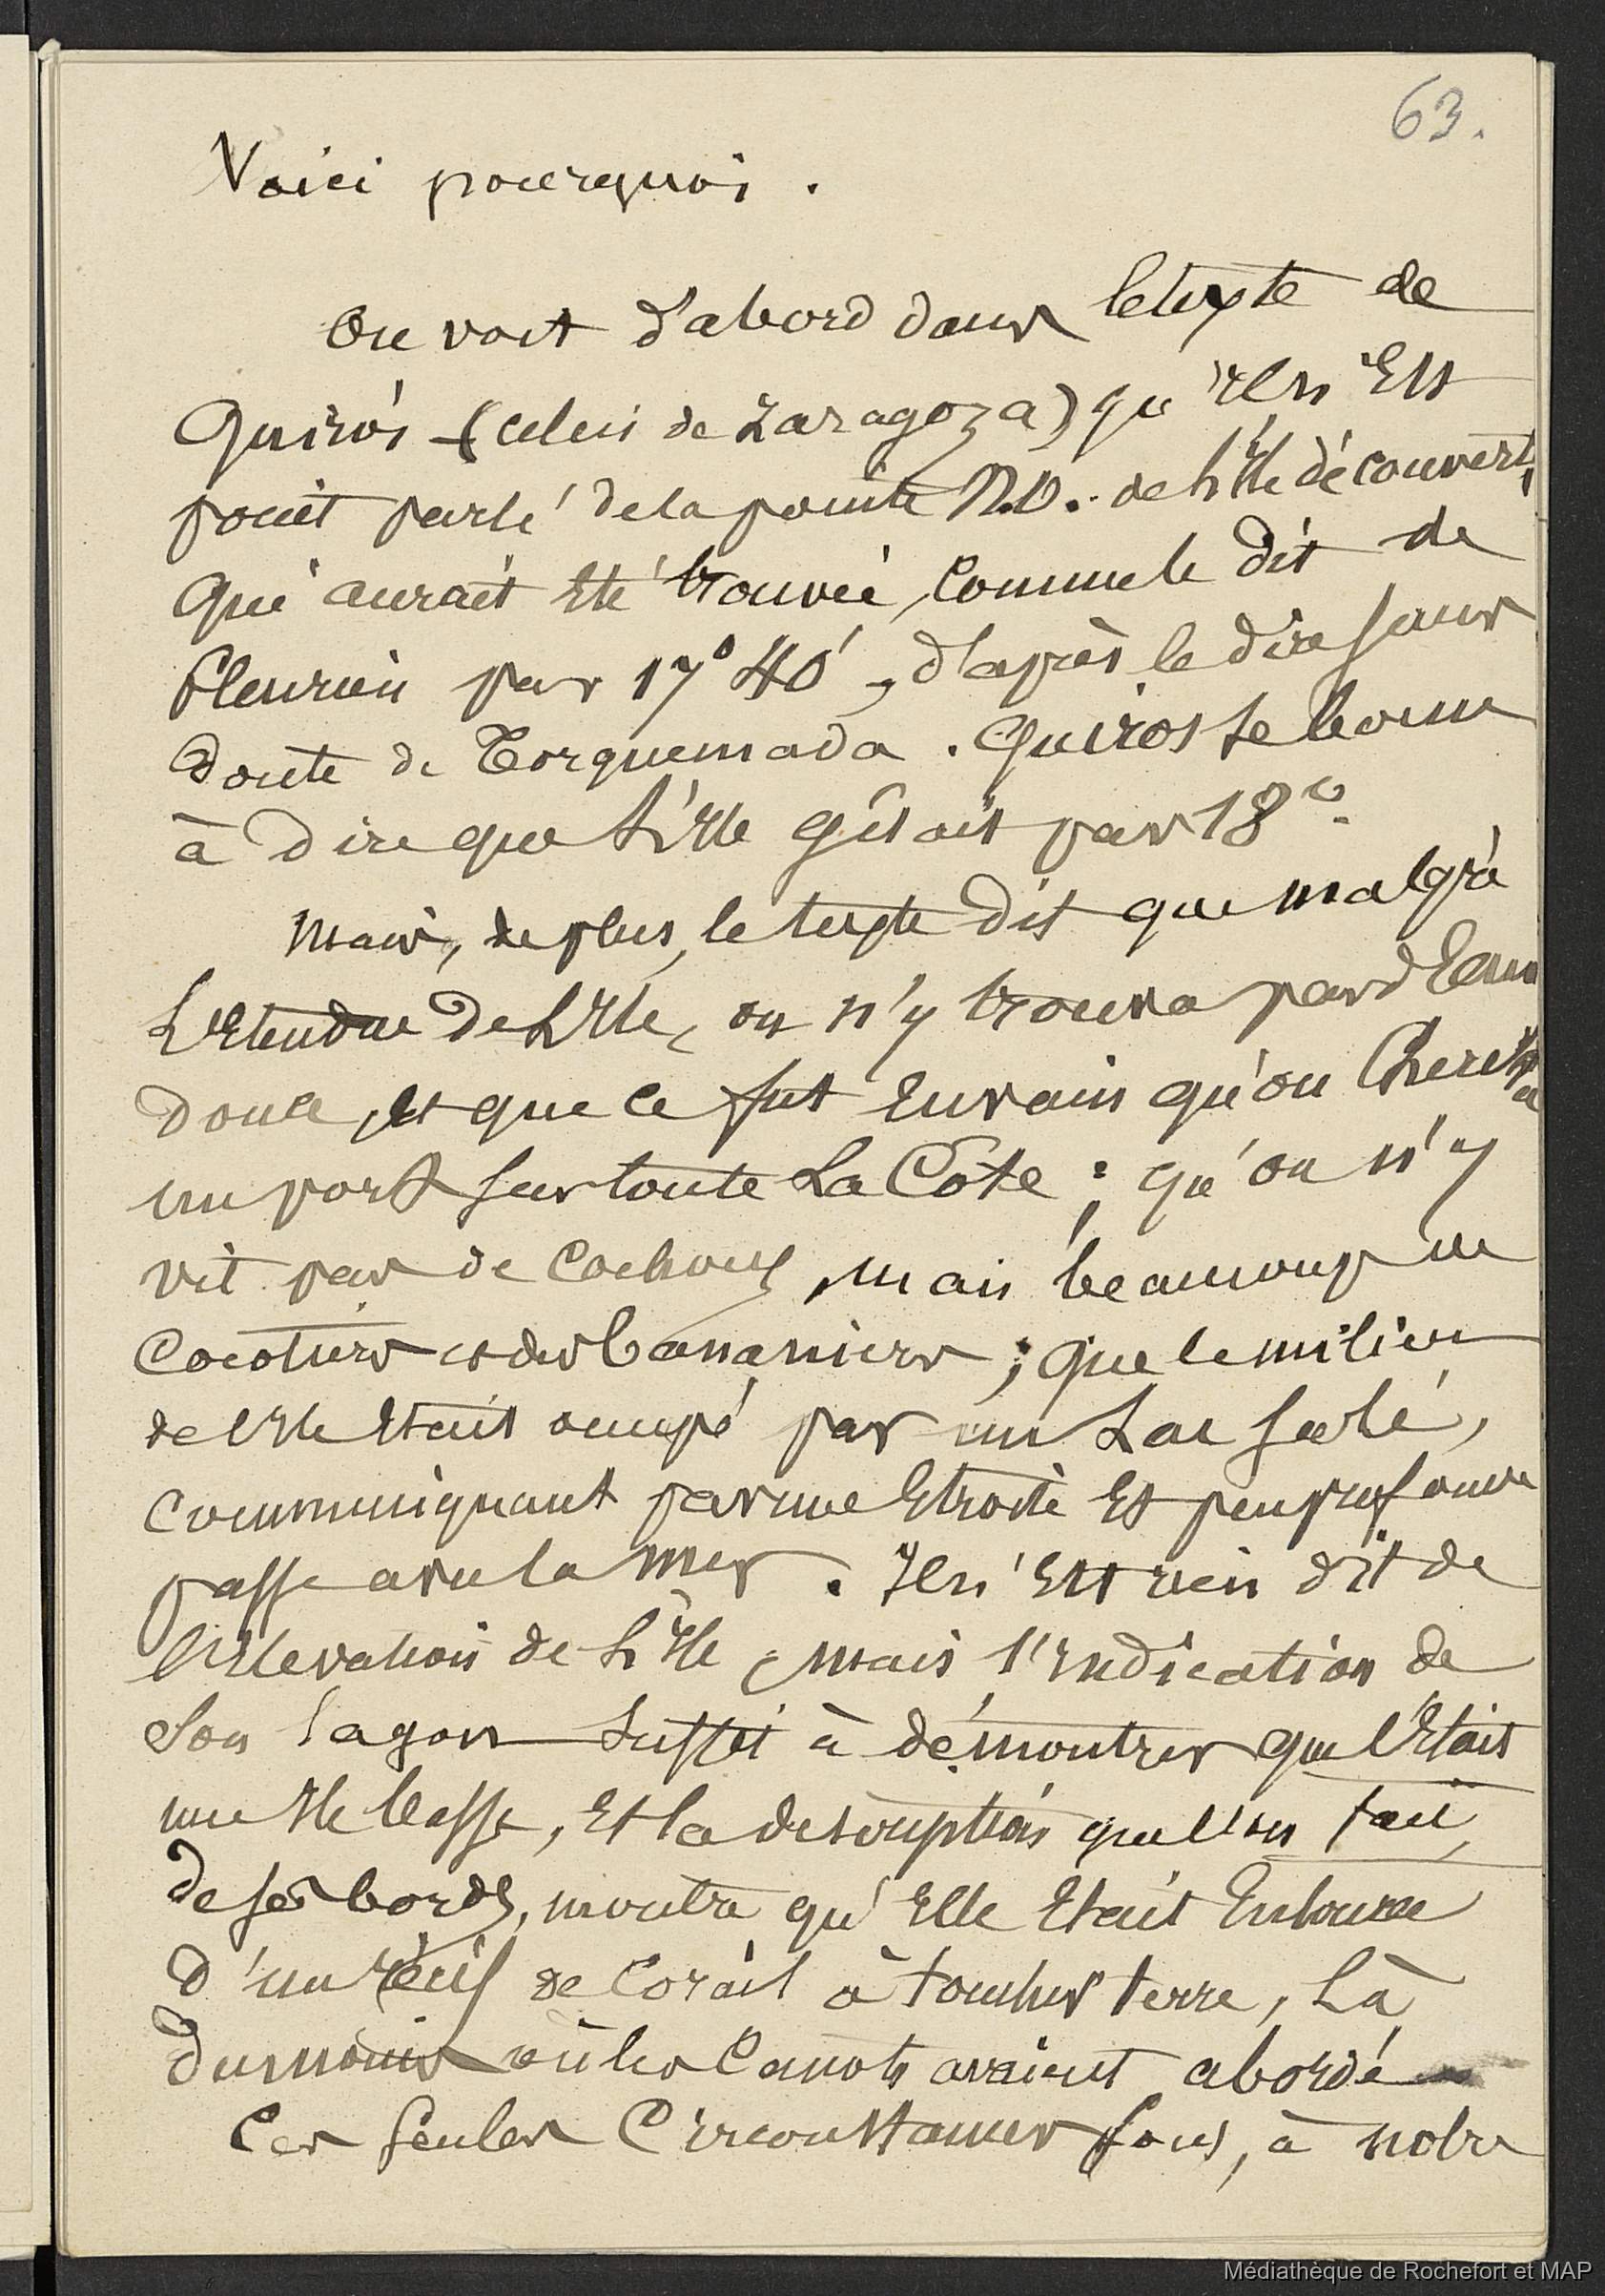 63.
Voici pourquoi.
On voit d'abord dans le texte de
Quirós (celui de Zaragoza) qu'il n'est
point parlé de la pointe N.O. de l'île découverte
qui aurait été trouvée, comme le dit de
Fleurieu par 17° 40', d'après le dire sans
doute de Torquemada. Quiros se borne
à dire que l'île gisait par 18°.
Mais, de plus, le texte dit que malgré
l'étendue de l'île, on n'y trouva pas d'eau
douce, et que ce fut en vain qu'on chercha
un port sur toute la côte ; qu'on n'y
vit pas de cochons, mais beaucoup de
cocotiers et des bananiers ; que le milieu
de l'île était occupé par un lac salé,
communiquant par une étroite et peu profonde
passe avec la mer. Il n'est rien dit de
l'élévation de l'île, mais l'indication de
son lagon suffit à démontrer que c'était
une île basse, et la description que l'on fait
de ses bords, montre qu'elle était entourée
d'un récif de corail à toucher terre, là
du moins où les canots avaient abordé
Ces seules circonstances sont, à notre
Médiathèque de Rochefort et MAP